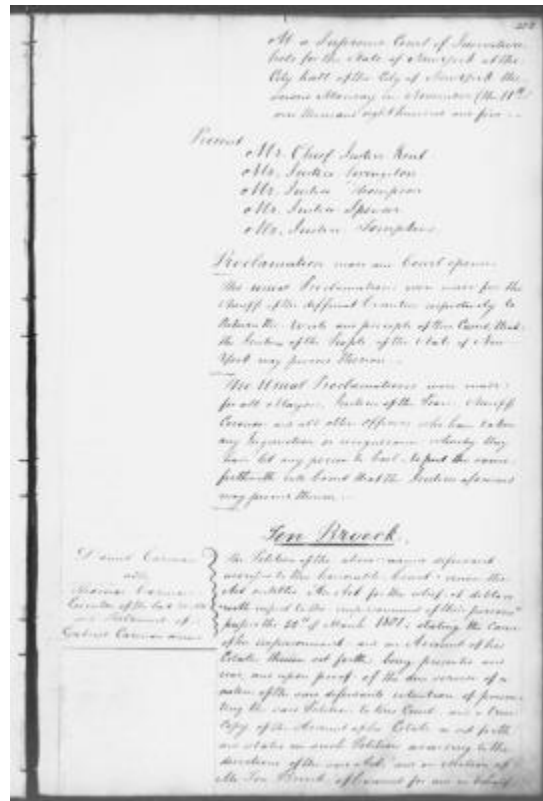 At a Supreme Court of Judicature
held for the State of New York at the
City hall of the City of New York the
second Monday in November (the 11th)
one thousand eight hundred and five
Present
Mr. Chief Justice Kent
Mr. Justice Livingston
Mr. Justice Thompson
Mr. Justice Spencer
Mr. Justice Tompkins
Proclamation made and Court opened
The usual Proclamations were made for the
Sheriffs of the different Counties respectively to
Return the Writs and precepts of this Court, that
the Justices of the People of the State of New
York may proceed thereon
The Usual Proclamations were made
for all Mayors, Justices of the Peace, Sheriffs
Coroners and all other officers who have taken
any Inquisition or recognizance whereby they
have let any person to bail to put the same
forthwith into Court that the Justices aforesaid
may proceed thereon
Ten Broeck
Daniel Carman
ads
Thomas Carman
Executor of the last Will
and Testament of
Carman
The Petition of the above named defendant
to this honorable Court under the
Act entitled An Act for the relief of debtors
with respect to the imprisonment of their persons
passed the of March 1801 stating the Cause
of his imprisonment and an Account of his
Estate therein set forth being presented and
read and upon proof of the due service of a
notice of the said defendants intention of presen-
ting the said Petition to this Court and a true
Copy of the Account of his Estate as set forth
and stated in such Petition according to the
directions of the said Act and on Motion of
Mr. Ten Broeck of Counsel for and in behalf